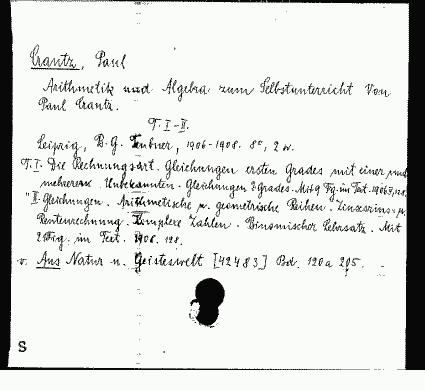 Crantz, Paul
Arithmetik und Algebra zum Selbstunterricht Von
Paul Crantz.
T. I-II.
Leipzig, B.G. Teubner, 1906-1908. 8°, 2 w.
T. I. Die Rechnungsart. Gleichungen ersten Grades mit einer und
mehreren Unbekannten. Gleichungen 2 Grades. Mit 9 Fig. im Text. 1906
" II. Gleichungen. Arithmetische u. geometrische Reihen. Zinseszins- u.
Rentenrechnung. Komplexe Zahlen. Binomischer Lehrsatz. Mit
Fig. im Text. 1906. 128.
v. Aus Natur u. Geisteswelt [42483] Bd. 120 a 205.
S